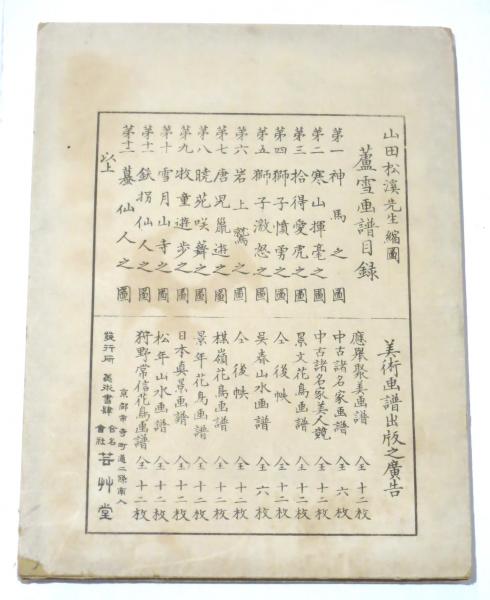 山田松溪先生縮圖
蘆雪画譜目録
第一 神馬之圖
第二 寒山揮毫之圖
第三 拾得愛虎之圖
第四 獅子憤勇之圖
第五 獅子激怒之圖
第六 岩上鷲之圖
第七 唐児嵐遊之圖
第八 暁苑咲舞之圖
第九 牧童遊歩之圖
第十 雪月山寺之圖
第十一 鉄拐仙人之圖
第十二 蟇仙人之圖
以上
美術画譜出版之廣告
應舉聚美画譜 仝十二枚
中古諸名家画譜 仝六枚
中古諸名家美人競 仝十二枚
景文花鳥画譜 仝十二枚
仝後帙 仝十二枚
呉春山水画譜 仝六枚
仝後帙 仝十二枚
楳嶺花鳥画譜 仝十二枚
景年花鳥画譜 仝十二枚
日本真景画譜 仝十二枚
松年山水画譜 仝十二枚
狩野常信花鳥画譜 仝十二枚
京都市寺町通二條南入
發行所 美術書肆 合名會社 芸艸堂